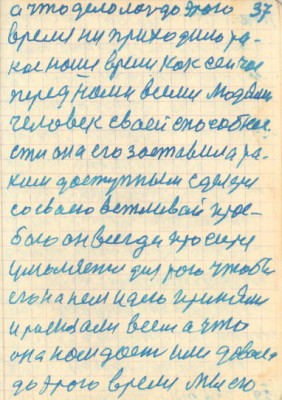 а что делолоч до этого 37
время ни приходило та-
кое наше время как сейчас
перед нами всеми людьми
человек сваей способнос
сти она его заставила та-
ким доступным сделал
со своего вежливай прос-
бою он всегда просит
умоляет для того чтобы
его на нем идею приняли
и всем а что
она нам дает или давала
до этого время мы его